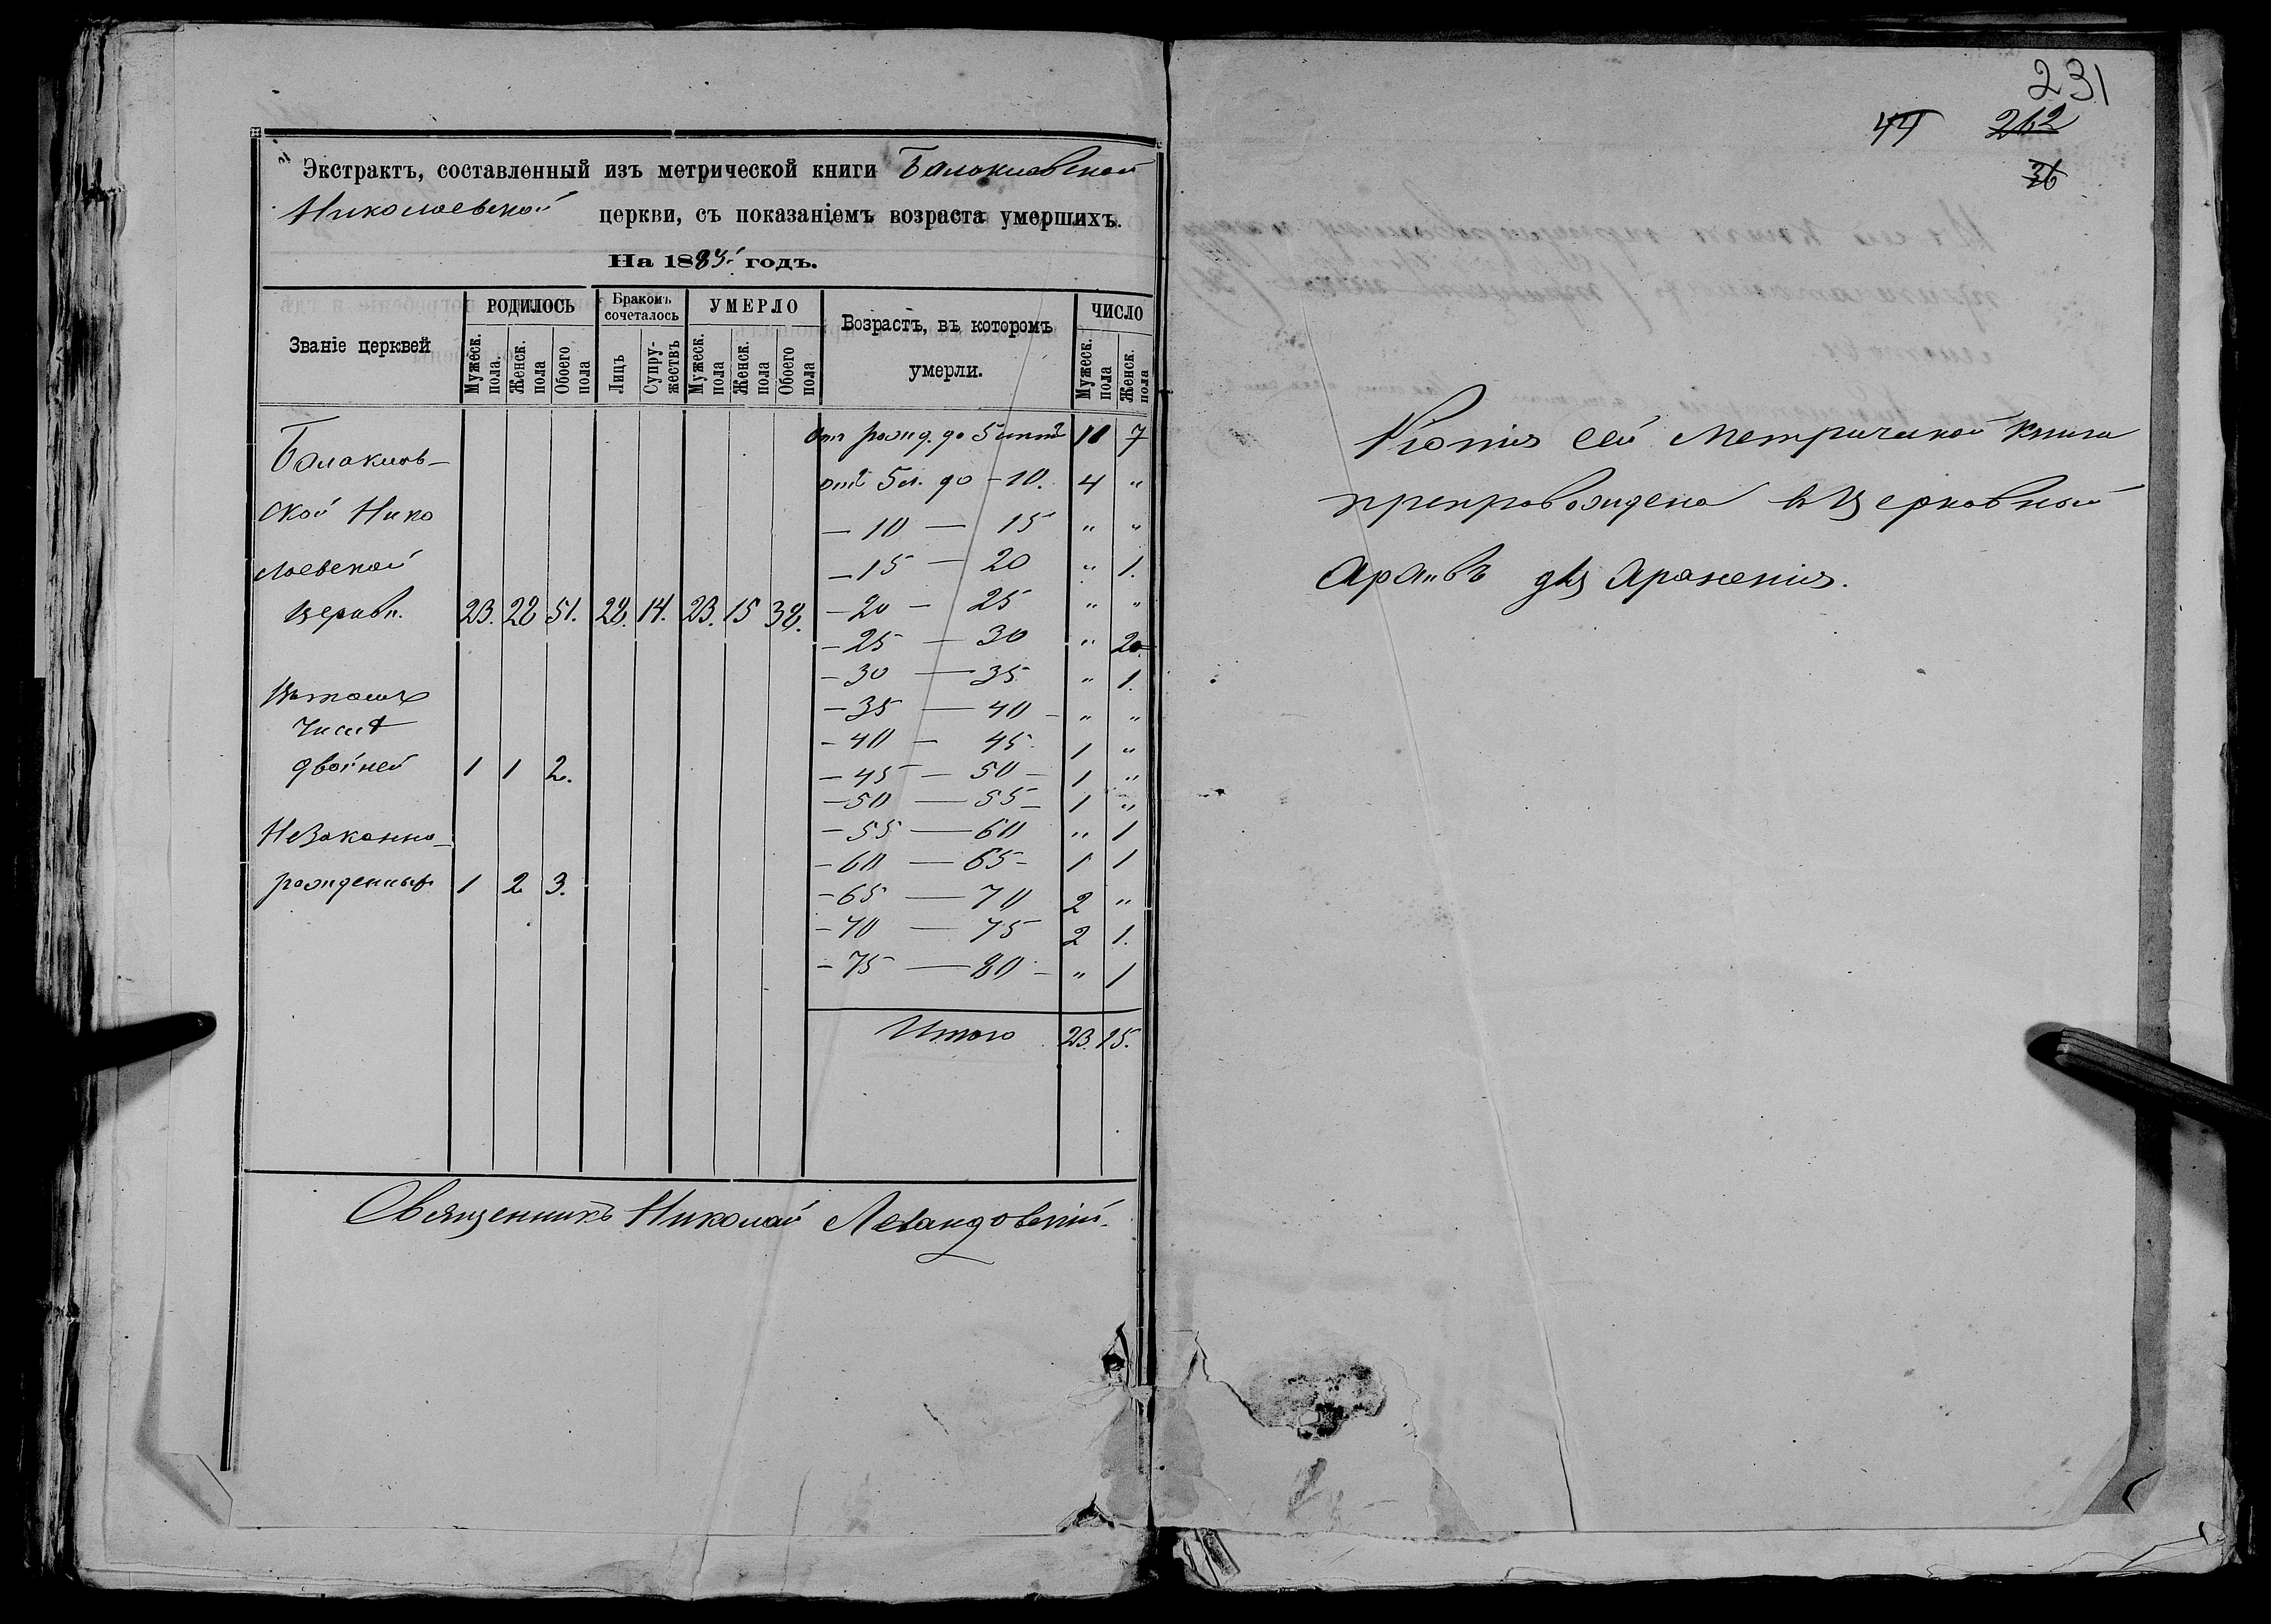 Экстрактъ, составленный изъ метрической книги Балаклавской
Николаевской церкви, съ показаніемъ возраста умершихъ.
На 1885 годъ.
Званіе церквей
РОДИЛОСЬ
Мужеск. пола.
Женск. пола
Обоего пола
Бракомъ сочеталось
Лицъ
Супружествъ
УМЕРЛО
Мужеск. пола
Женск. пола
Обоего пола
Возрастъ, въ которомъ умерли.
ЧИСЛО
Мужеск. пола
Женск. пола
отъ рожд. до 5 летъ 10 7
отъ 5 л. до - 10. 4 "
— 10 — 15 " "
— 15 — 20 " 1.
— 20 — 25 " "
— 25 — 30 " 2.
— 30 — 35 " 1.
— 35 — 40 — " "
— 40 — 45. 1 "
— 45 — 50 — 1 "
— 50 — 55 — 1 "
— 55 — 60 " 1
— 60 — 65 — 1 1
— 65 — 70 2 "
— 70 — 75 2 1.
— 75 — 80 — " 1
Итого 23. 15.
Балаклав-
ской Нико
лаевской
церкви. 23. 28 51. 28. 14. 23. 15 38.
Въ томъ
числѣ
двойней 1 1 2.
Незаконно-
рожденныхъ 1 2 3.
Священникъ Николай Левандовскій.
231
44 212
36
Копія сей Метрической книги
препровождена въ Церковный
Архивъ для храненія.